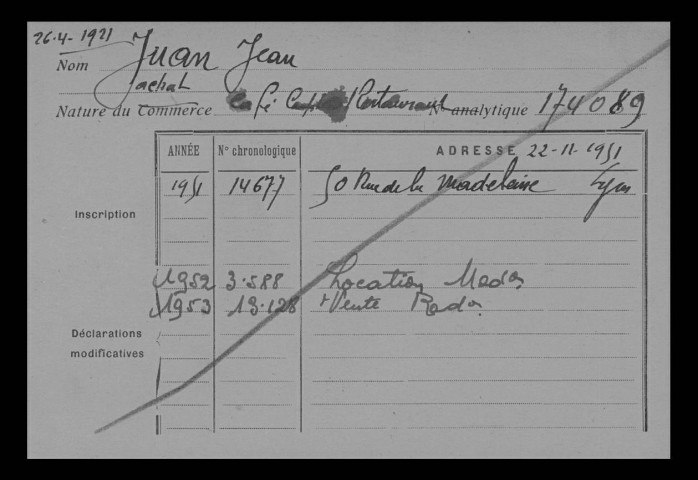 26.4-1921
Nom Juan Jean
achat
Nature du Commerce Café Restaurant N° analytique 174089
ANNÉE N° chronologique ADRESSE 22-11-1951
1951 14677 50 Rue de la Madeleine Lyon
Inscription
1952 3.588 Location
1953 13.128 Vente
Déclarations
modificatives